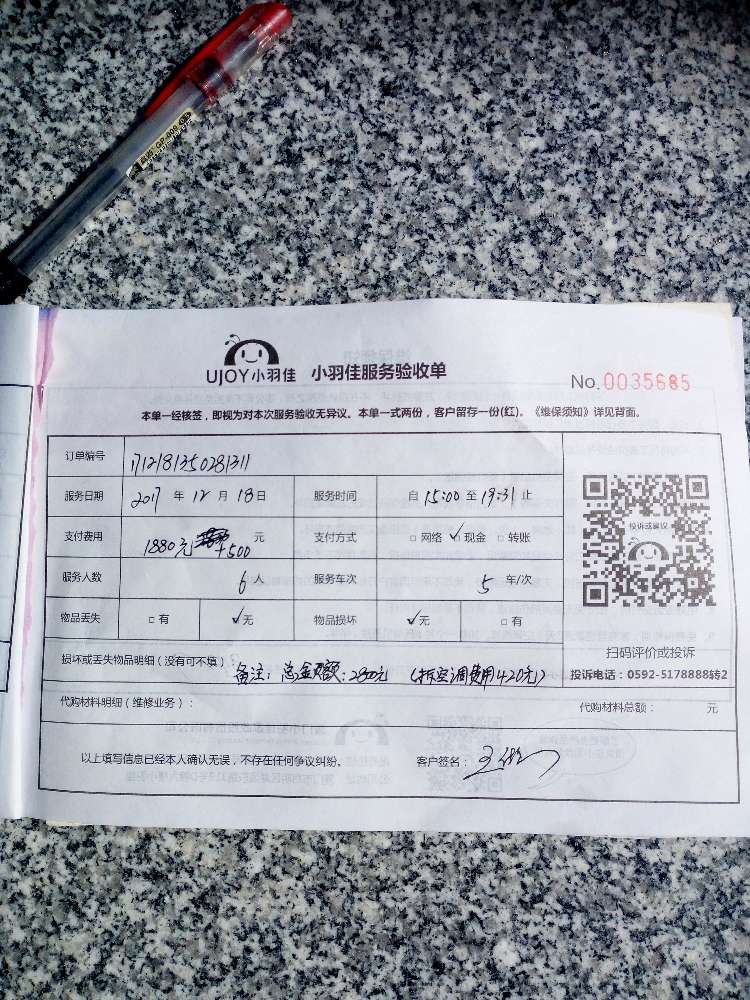 UJOY小羽佳 小羽佳服务验收单
No.0035685
本单一经核签，即视为对本次服务验收无异议。本单一式两份，客户留存一份(红)。《维保须知》详见背面。
订单编号 1712181350281311
服务日期 2017 年 12 月 18 日 服务时间 自 15:00 至 19:31 止
支付费用 1880元 +500 元 支付方式 □ 网络 ✓ 现金 □ 转账
服务人数 6 人 服务车次 5 车/次
物品丢失 □ 有 ✓无 物品损坏 ✓无 □ 有
投诉或建议
扫码评价或投诉
投诉电话：0592-5178888转2
损坏或丢失物品明细（没有可不填） 备注：总金额：2800元 （拆空调费用420元）
代购材料明细（维修业务）： 代购材料总额： 元
以上填写信息已经本人确认无误，不存在任何争议纠纷。 客户签名：